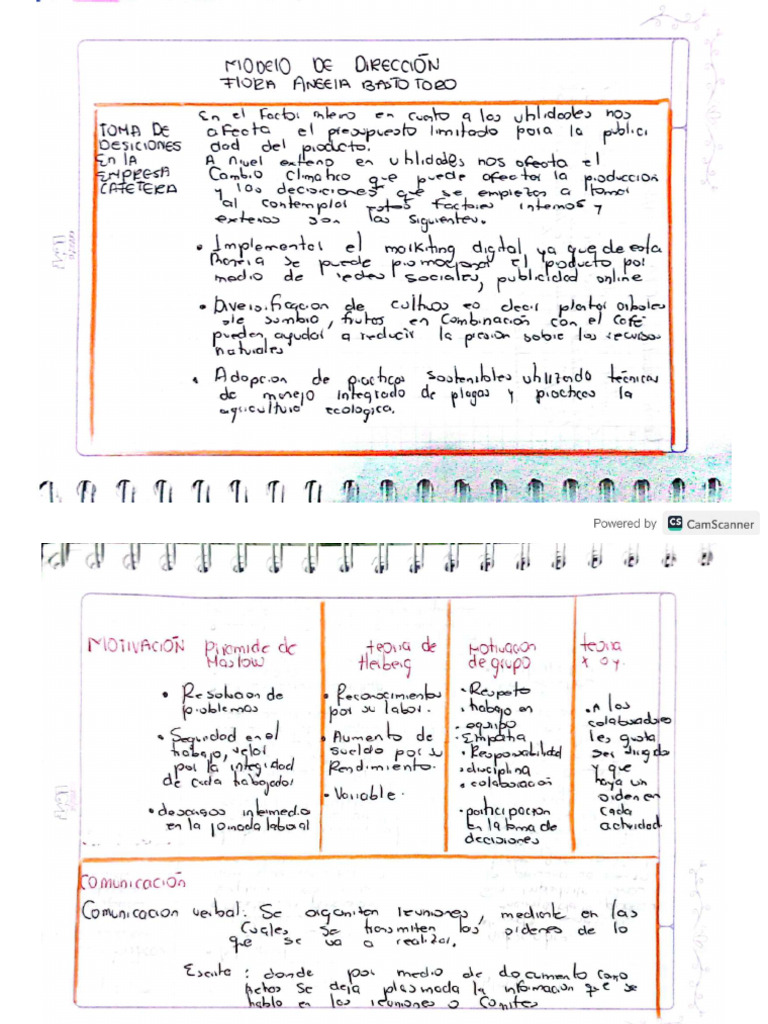 MODELO DE DIRECCIÓN
FLORA ANGELA BASTO TORO
TOMA DE
DESICIONES
En la
EMPRESA
CAFETERA
En el Factor interno en cuanto a las utilidades nos
afecta el presupuesto limitado para la publici
dad del producto.
A nivel externo en utilidades nos afecta el
Cambio Climatico que puede afectar la producción
y las decisiones que se empiezan a tomar
al contemplar estos factores internos y
externos son las siguientes.
• Implementar el markiting digital ya que de esta
Manera se puede promocionar el producto por
medio de redes sociales, publicidad online
• Diversificacion de cultivos es decir plantar arboles
de sombrio, frutos en combinación con el café
pueden ayudar a reducir la presion sobre los recursos
naturales
• Adopcion de practicas sostenibles utilizando técnicas
de manejo integrado de plagas y practicas la
agricultura ecologica.
Powered by CS CamScanner
MOTIVACIÓN Piramide de
Maslow
• Resolucion de
problemas
• Seguridad en el
trabajo, velar
por la integridad
de cada trabajador
• descansos intermedio
en la jornada laboral
teoria de
Herberg
• Reconocimientos
por su labor.
• Aumento de
sueldo por su
Rendimiento.
• Variable.
Motivacion
de grupo
• Respeto
• trabajo en
equipo
• Empatia
• Responsabilidad
• disciplina
• colaboracion
• participacion
en la toma de
decisiones
teoria
x o y.
• A los
colaboradores
les gusta
ser dirigido
y que
haya un
orden en
cada
actividad
Comunicación
Comunicacion verbal: Se organizan reuniones, mediante en las
Cuales se transmiten las ordenes de lo
que se va a realizar.
Escrita: donde por medio de documento como
Actas se deja plasmada la informacion que se
hablo en las reuniones o Comites